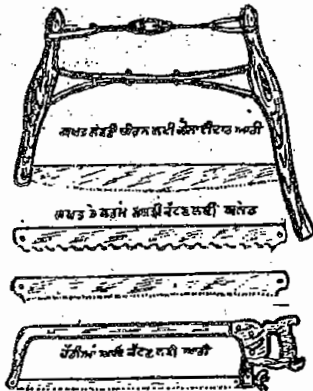 ਸਖਤ ਲੱਕੜੀ ਚੀਰਨ ਲਈ ਕੈਂਚੀਦਾਰ ਆਰੀ
ਸਖਤ ਤੇ ਨਰਮ ਲੱਕੜੀ ਕੱਟਣ ਲਈ ਬਲੇਡ
ਹੱਡੀਆਂ ਆਦਿ ਕੱਟਣ ਲਈ ਆਰੀ